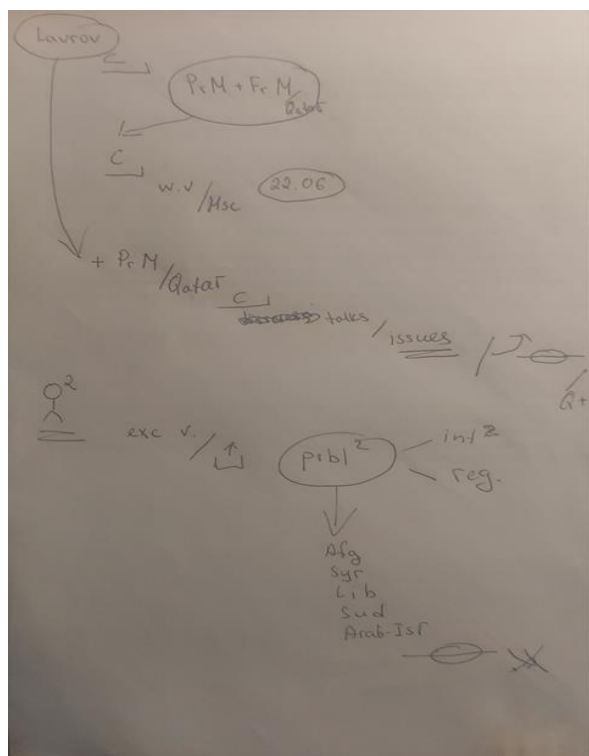 Lavrov
C
PrM + FrM
/Qatar
C
w.v /Msc 22.06
+ PrM /Qatar
C
talks / issues
Q+
2
exc v. /
prbl 2
int 2
reg.
Afg
Syr
Lib
Sud
Arab-Isr